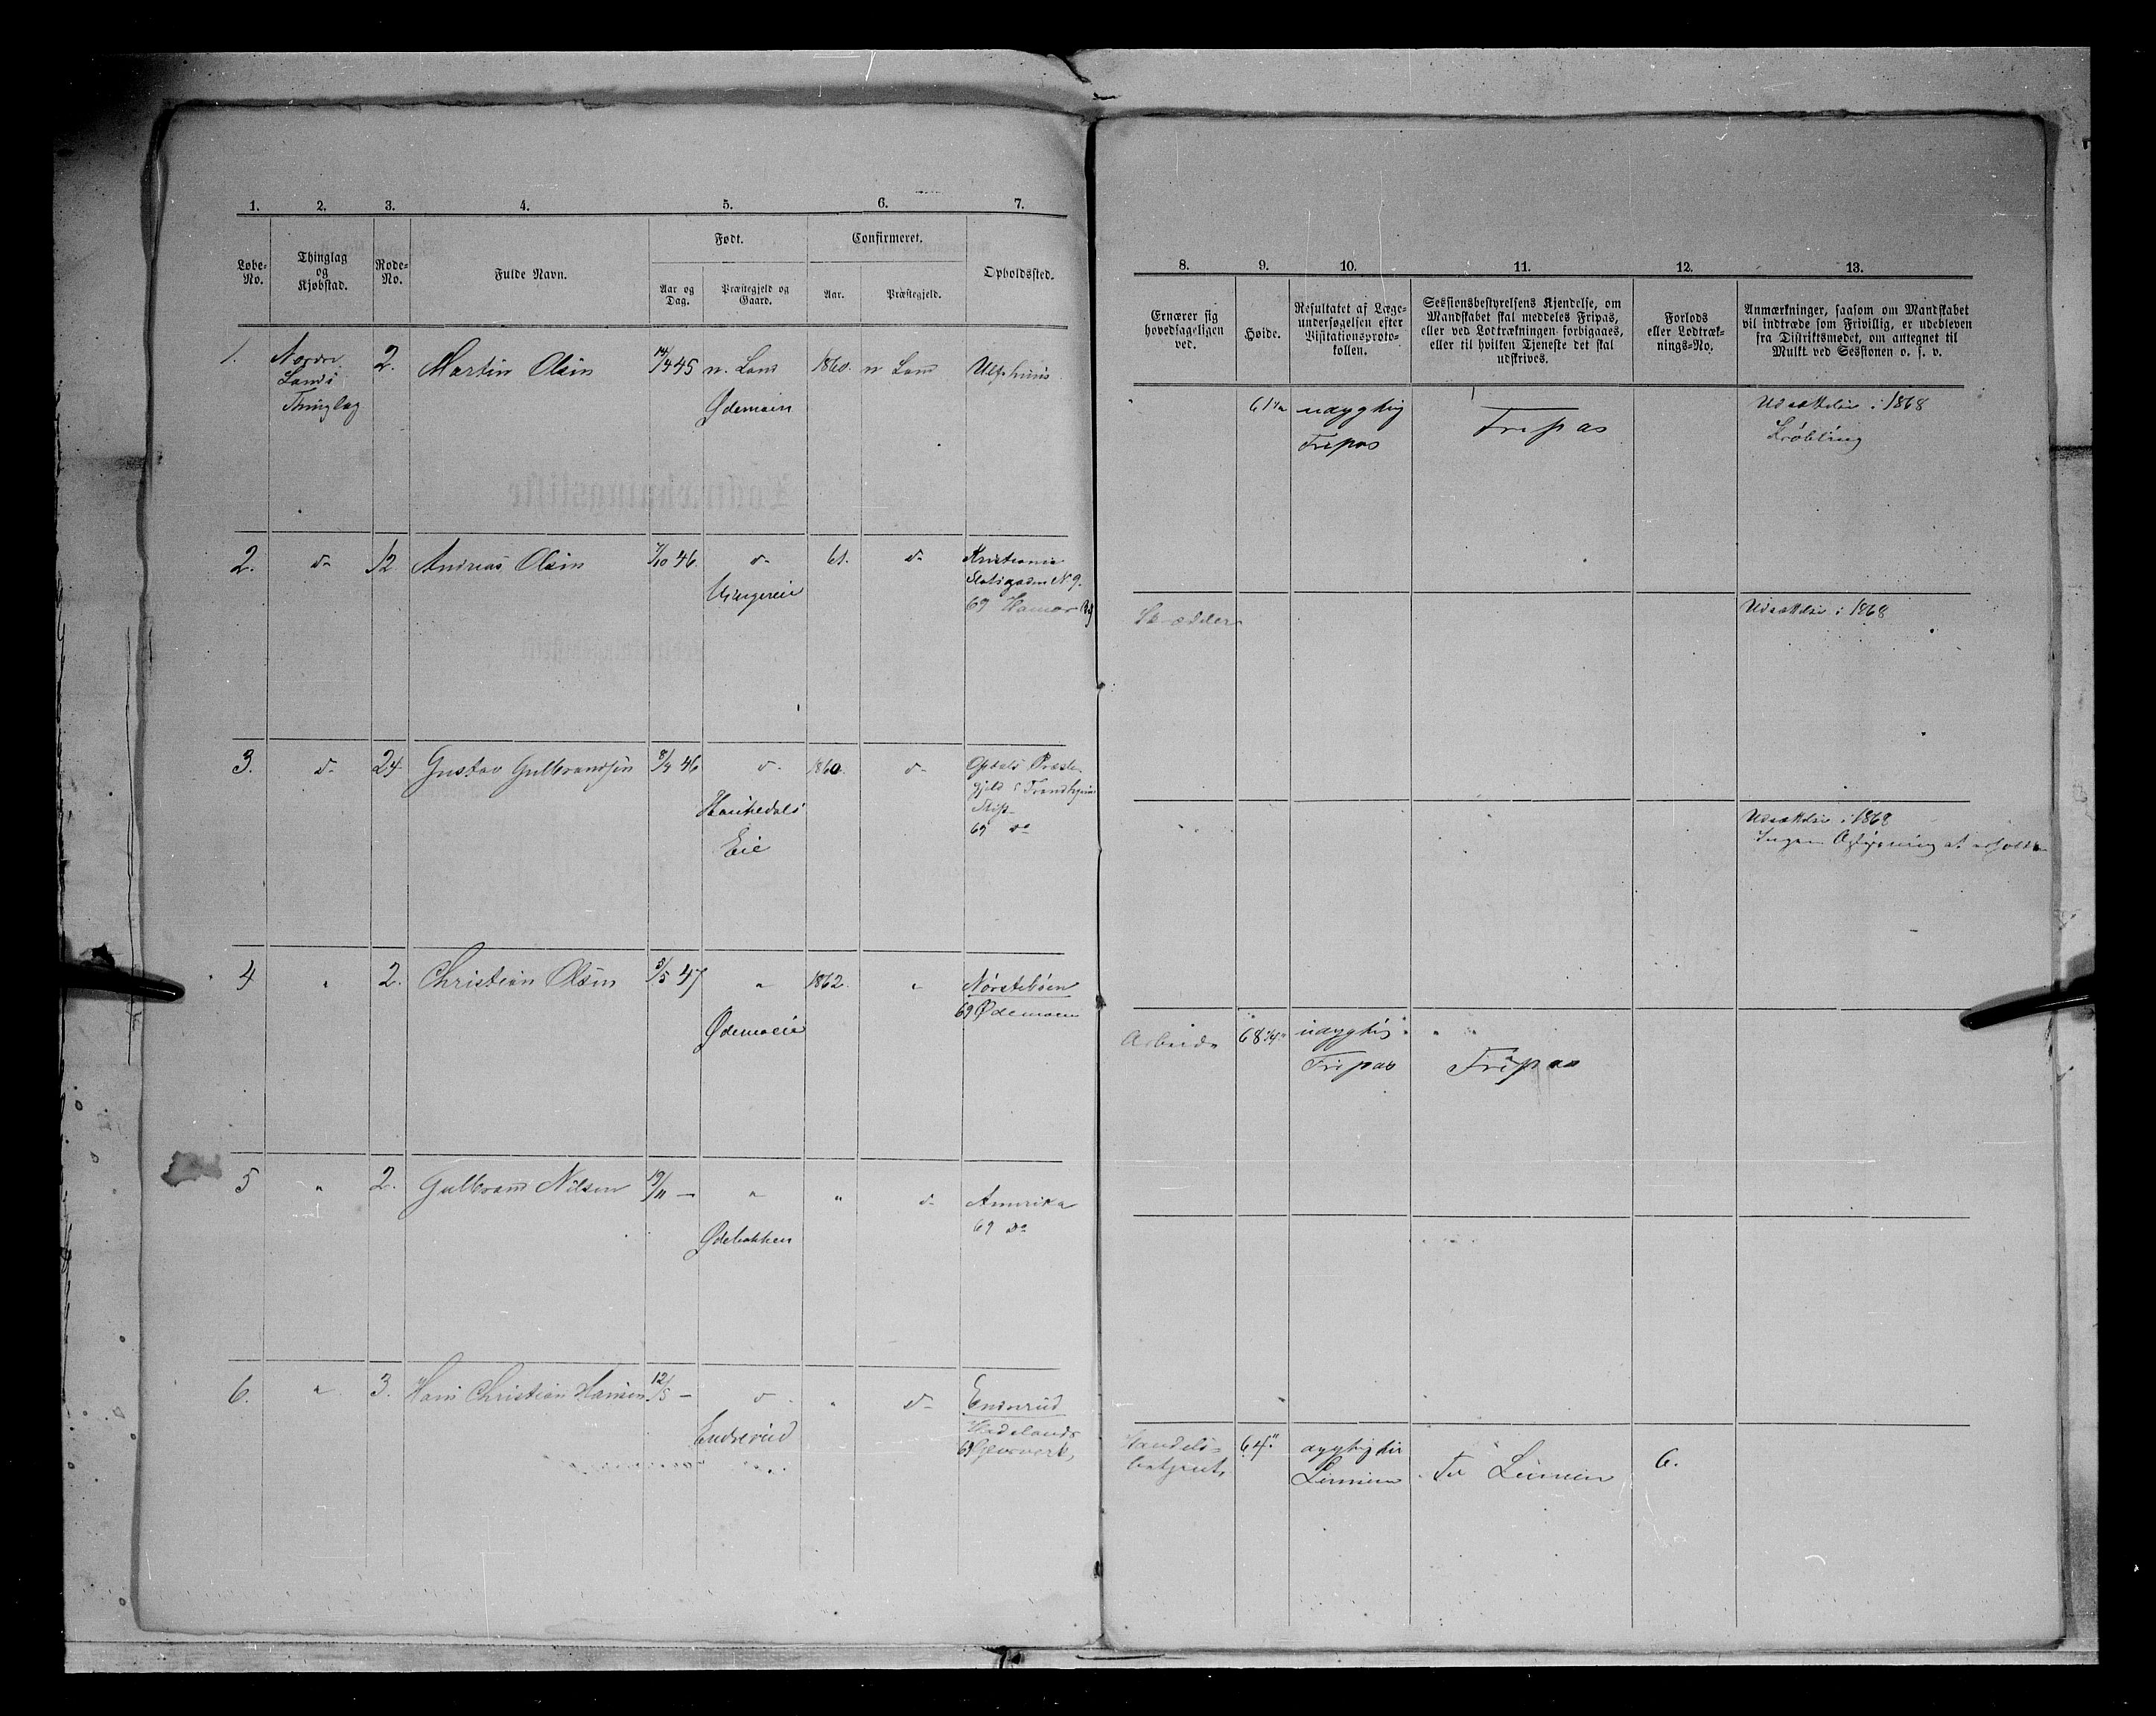 1. 2. 3. 4. 5. 6. 7.
Løbe-No. Thinglag og Kjøbstad. Rode-No. Fulde Navn. Født. Confirmeret. Opholdssted.
Aar og Dag. Præstegjeld og Gaard. Aar. Præstegjeld.
1. Nordre 2. Martin Olsen 14/4 45 n. Land 1860. n Land
Lands
Thinglag Ødemoen
2. d- 12 Andreas Olsen 7/10 46. d- 61. d- Kristiania
N 9.
69 Hamar
3. d- 24. Gustav Gulbrandsen 8/4 46 d- 1860. d- Opdals Præste-
gjeld i Trondhjems
Stift
Eie 69 do
4 " 2. Christian Olsen 5/5 47 " 1862. " Nørstebøen
Ødemoeie 69 Ødemoen
5 " 2. Gulbrand Nilsen 19/11 - " " d- Amerika
Ødebakken 69 do
6. " 3. Hans Christian Hansen 12/5 - d- " d- Enderud
Enderud Hadelands
69 Glasværk,
8. 9. 10. 11. 12. 13.
Ernærer sig hovedsageligen ved. Høide. Resultatet af Læge-undersøgelsen efter Visitationsproto-kollen. Sessionsbestyrelsens Kjendelse, om Mandskabet skal meddeles Fripas, eller ved Lodtrækningen forbigaaes, eller til hvilken Tjeneste det skal udskrives. Forlods eller Lodtræk-nings-No. Anmærkninger, saasom om Mandskabet vil indtræde som Frivillig, er udebleven fra Distriktsmødet, om antegnet til Mulkt ved Sessionen o. s. v.
udygtig Fripas Udsættelse i 1868
Fripas Krøbling
Skrædder Udsættelse i 1868
Udsættelse i 1868
Ingen Oplysning at erholde
Arbeide 68 1/4" udygtig
Fripas Fripas
Handels- 64" dygtig til Til Linien 6.
betjent, Linien